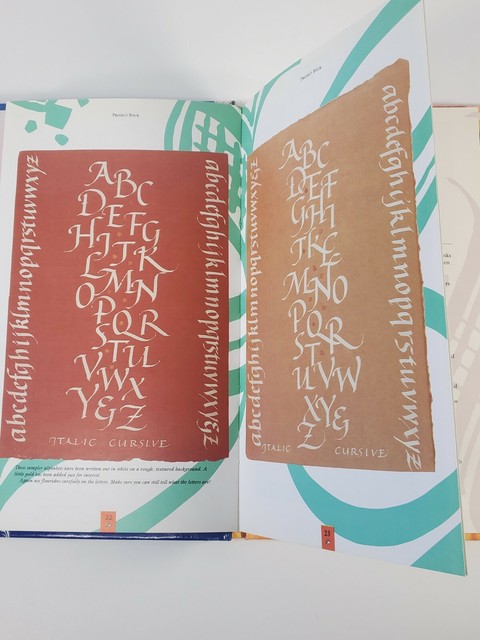 PROJECT BOOK
abcdefghijklmnopqrstuvwxyz
ABC
DEFG
HIJK
LMN
OPQR
STU
VWX
Y&Z
abcdefghijklmnopqrstuvwxy&z
ITALIC CURSIVE
These sampler alphabets have been written out in white on a rough, textured background. A
little gold has been added just for interest.
Again use flourishes carefully on the letters. Make sure you can still tell what the letters are!
22
PROJECT BOOK
abcdefghijklmnopqrstuvwxy&z
ABC
DEF
GHI
JKL
MNO
PQR
ST
UVW
XY&
Z
abcdefghijklmnopqrstuvwxyz
ITALIC CURSIVE
23